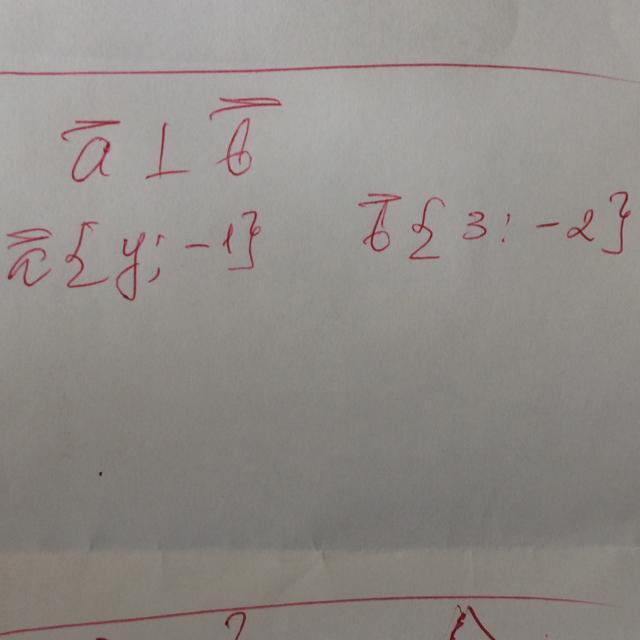 a̅ ⊥ b̅
a̅{y; -1} b̅{3; -2}
?